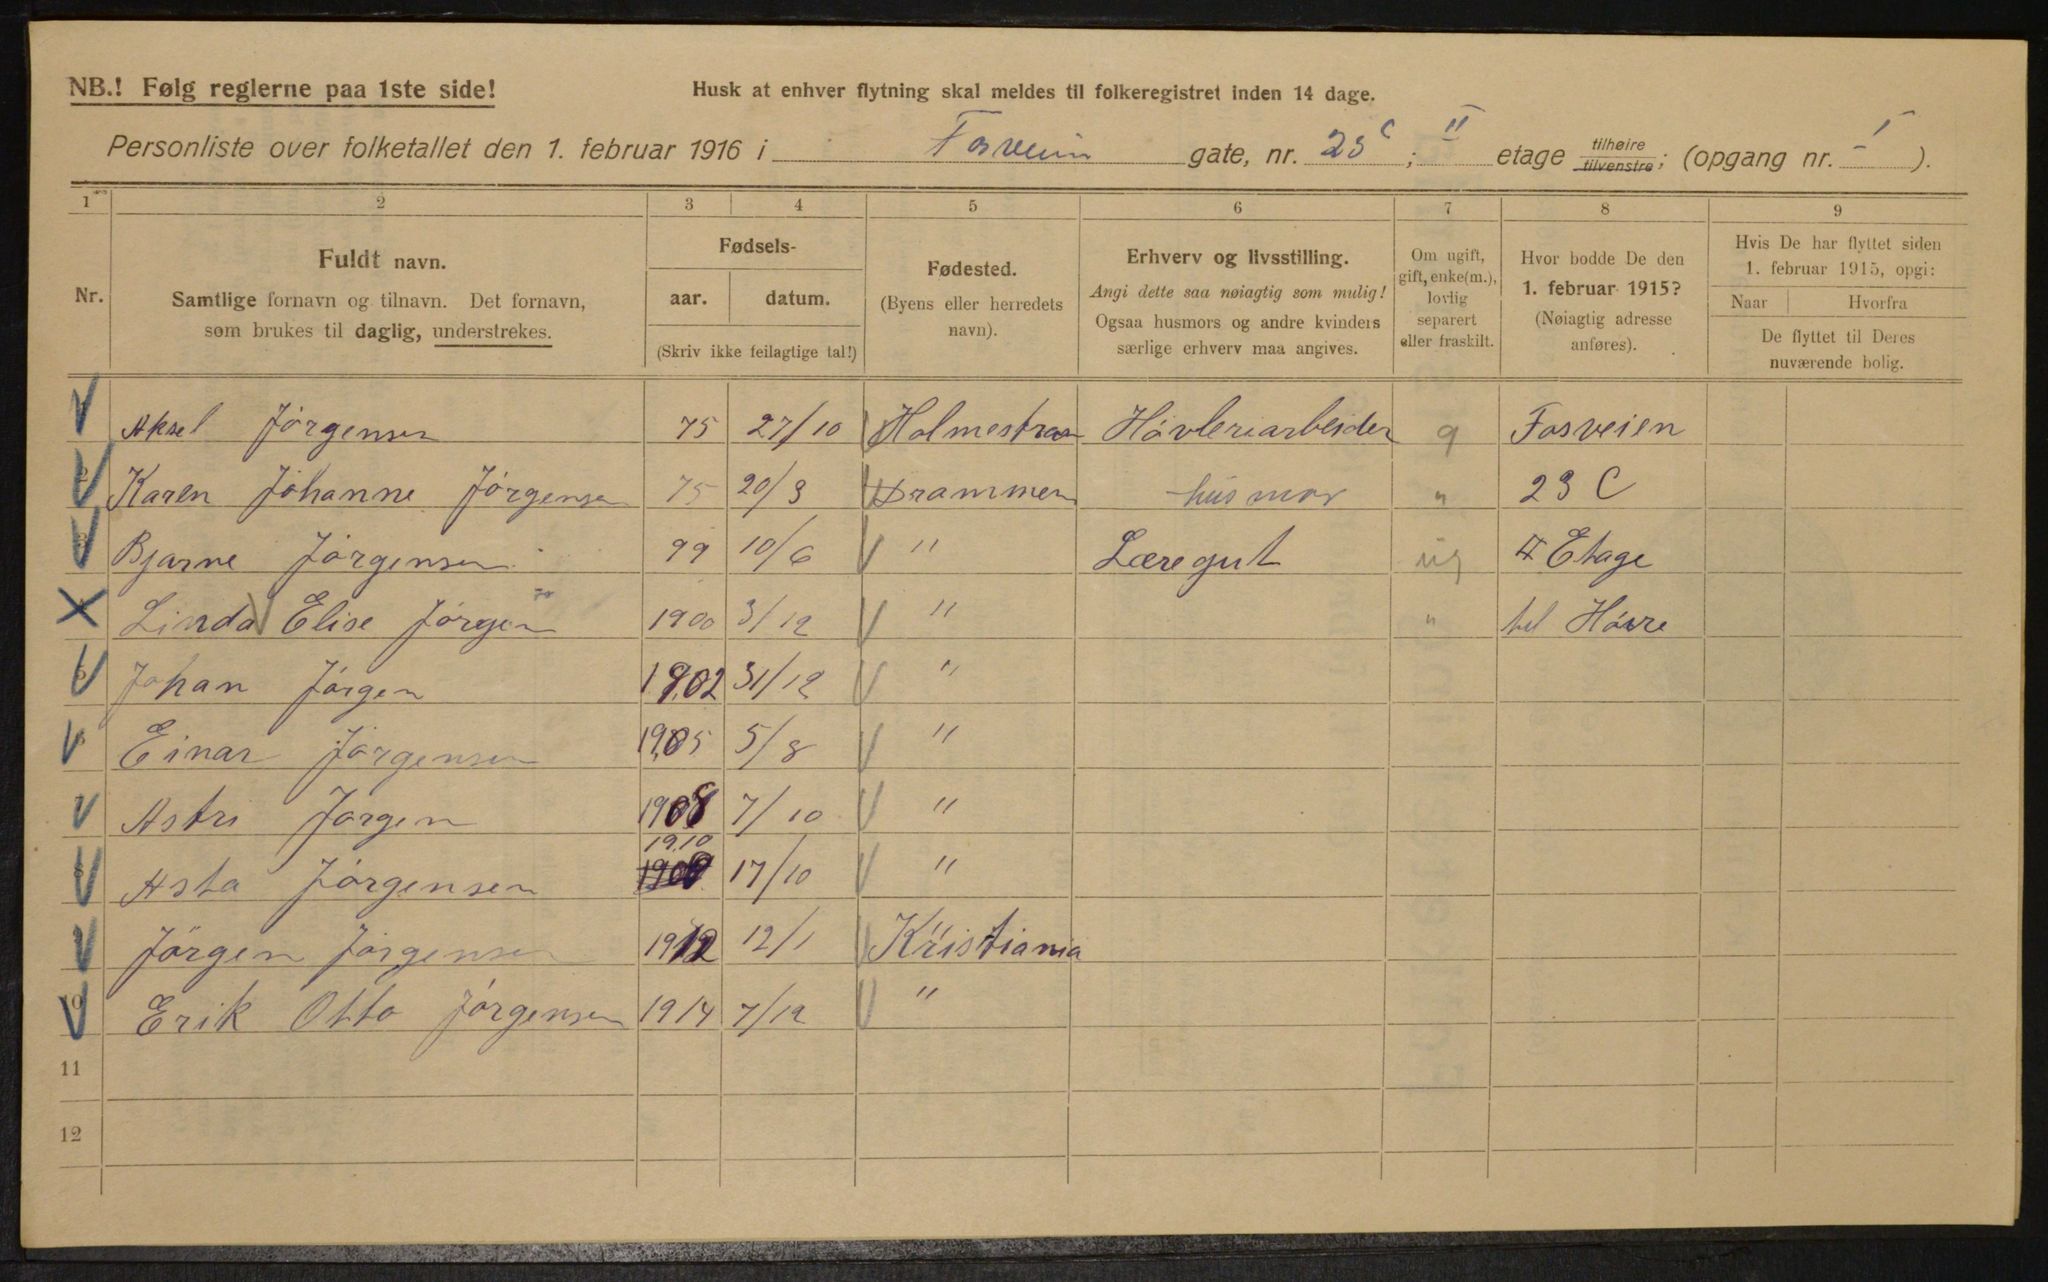 NB.! Følg reglerne paa 1ste side!
Husk at enhver flytning skal meldes til folkeregistret inden 14 dage.
Personliste over folketallet den 1. februar 1916 i Fosveien gate, nr. 23 c ; II etage tilhøire tilvenstre; (opgang nr. I ).
1 2 3 4 5 6 7 8 9
Nr.
Fuldt navn.
Samtlige fornavn og tilnavn. Det fornavn,
som brukes til daglig, understrekes.
Fødsels-
aar. datum.
(Skriv ikke feilagtige tal!)
Fødested.
(Byens eller herredets
navn).
Erhverv og livsstilling.
Angi dette saa nøiagtig som mulig!
Ogsaa husmors og andre kvinders
særlige erhverv maa angives.
Om ugift,
gift, enke(m.),
lovlig
separert
eller fraskilt.
Hvor bodde De den
1. februar 1915?
(Nøiagtig adresse
anføres).
Hvis De har flyttet siden
1. februar 1915, opgi:
Naar Hvorfra
De flyttet til Deres
nuværende bolig.
Aksel Jörgensen 75 27/10 Holmestran Hövleriarbeider g Fosveien
2 Karen Johanne Jörgensen 75 20/3 Drammen husmor " 23 C
3 Bjarne Jörgensen 99 10/6 " Læregut ug II Etage
Linda Elise Jörgen 1900 3/12 " " tel Höire
5 Johan Jörgen 1902 31/12 "
6 Einar Jörgensen 1905 5/8 "
7 Astri Jörgen 1908 7/10 "
19.10
8 Asta Jörgensen 17/10 "
9 Jörgen Jörgensen 1912 12/1 Kristiania
10 Erik Otto Jörgensen 1914 7/12 "
11
12